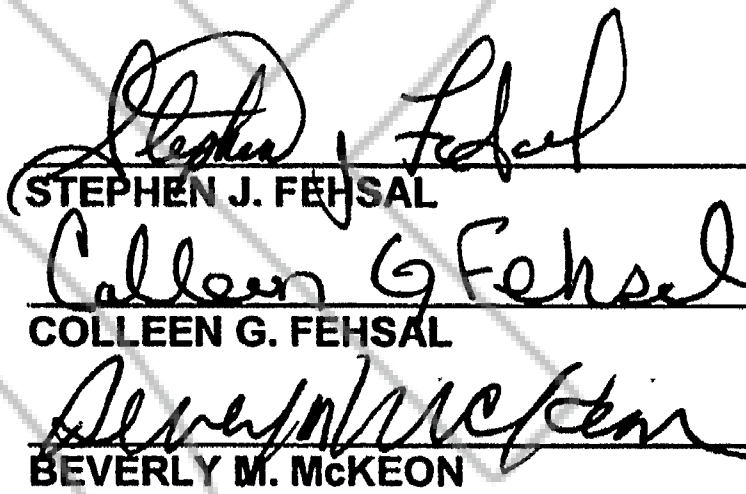 Stephen J Fehsal
STEPHEN J. FEHSAL
Colleen G Fehsal
COLLEEN G. FEHSAL
Beverly M McKeon
BEVERLY M. McKEON